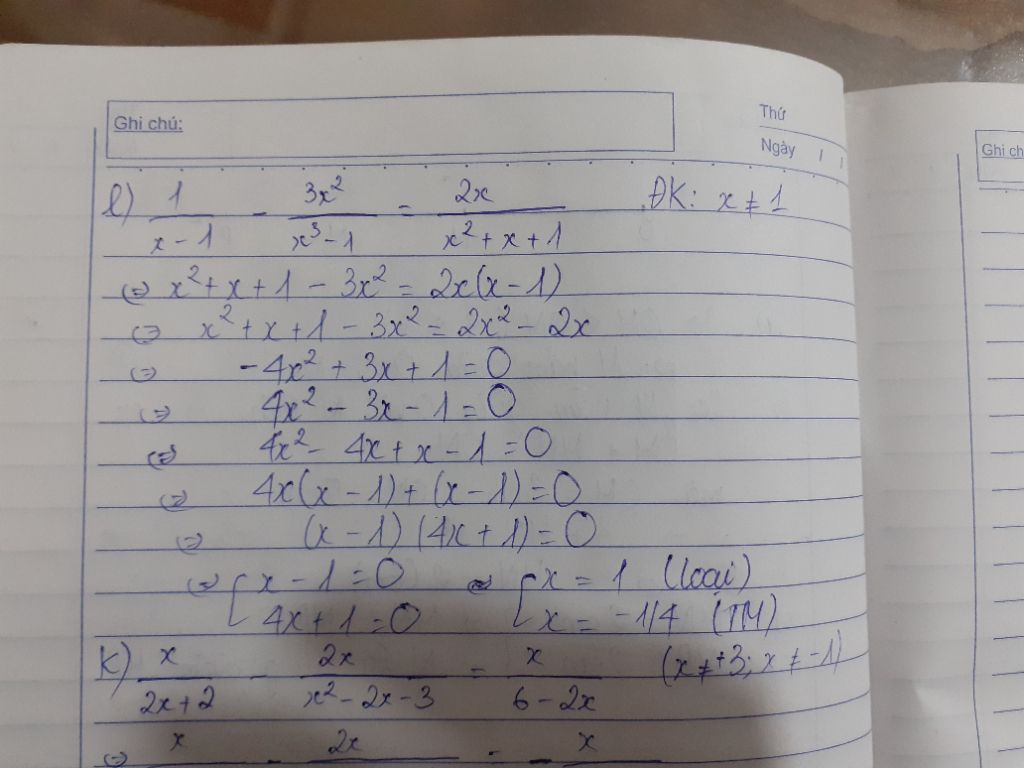 Ghi chú:
Thứ
Ngày / /
Ghi ch
l) 1/(x - 1) - 3x²/(x³ - 1) = 2x/(x² + x + 1) ĐK: x ≠ 1
(=) x² + x + 1 - 3x² = 2x(x - 1)
(=) x² + x + 1 - 3x² = 2x² - 2x
(=) -4x² + 3x + 1 = 0
(=) 4x² - 3x - 1 = 0
(=) 4x² - 4x + x - 1 = 0
(=) 4x(x - 1) + (x - 1) = 0
(=) (x - 1)(4x + 1) = 0
(=) [ x - 1 = 0 (=) [ x = 1 (loại)
4x + 1 = 0 x = -1/4 (TM)
k) x/(2x + 2) - 2x/(x² - 2x - 3) = x/(6 - 2x) (x ≠ +3; x ≠ -1)
(=) x - 2x = - x